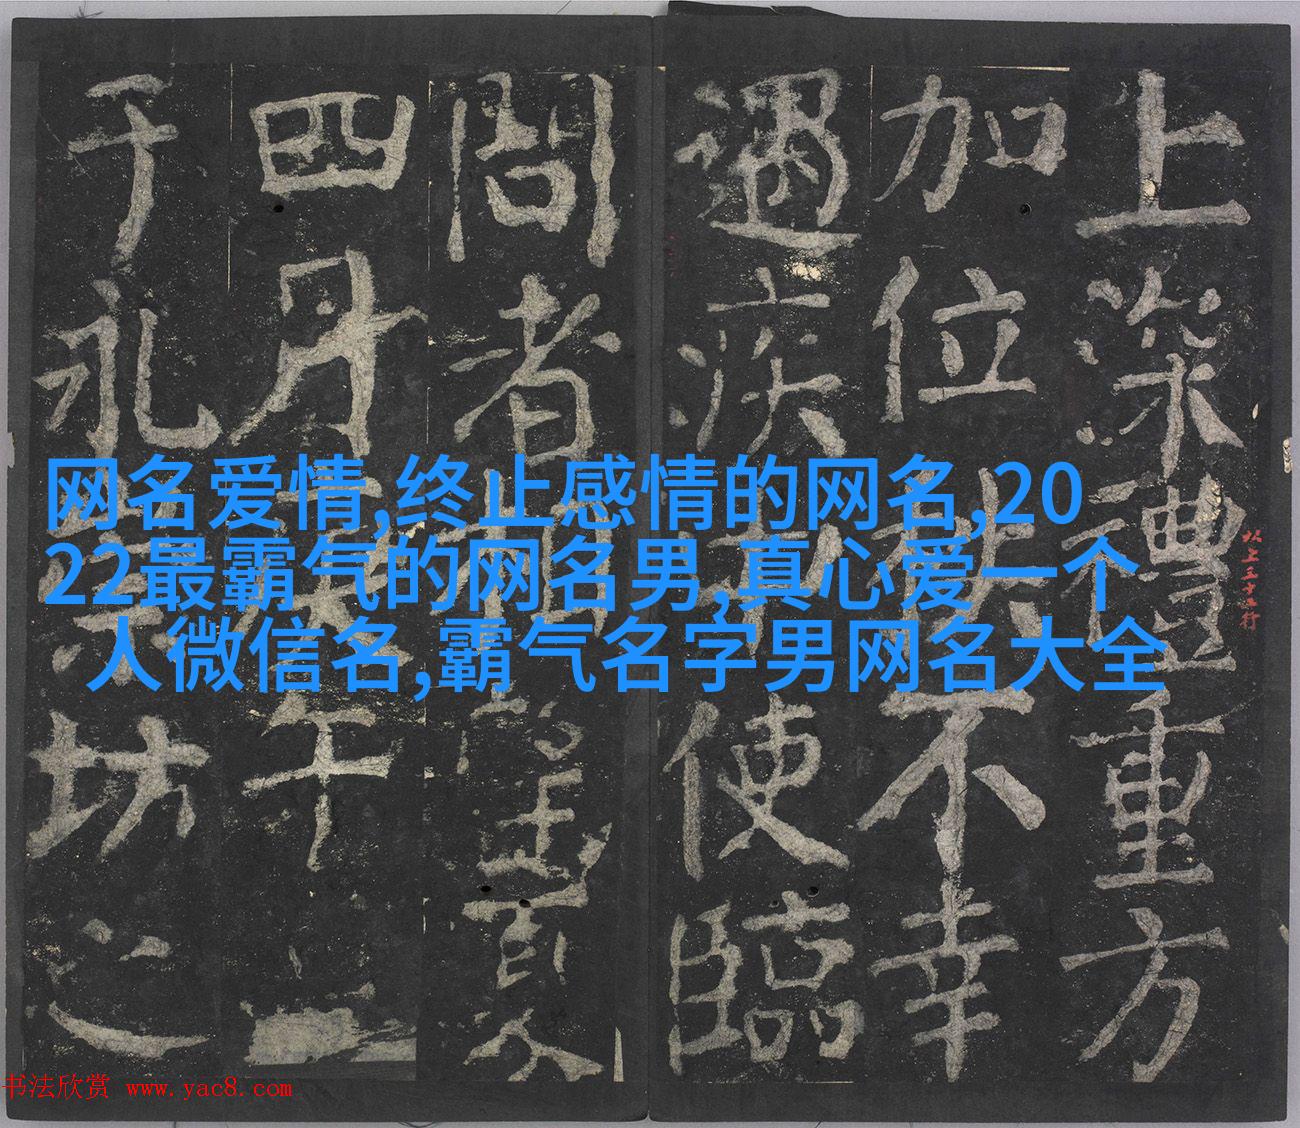 上深禮重方
加位不幸
遇疾使臨
問者相望夏
四月午
于永坊之
以上三十五行
网名爱情,终止感情的网名,20
22最霸气的网名男,真心爱一个
人微信名,霸气名字男网名大全
书法欣赏 www.yac8.com